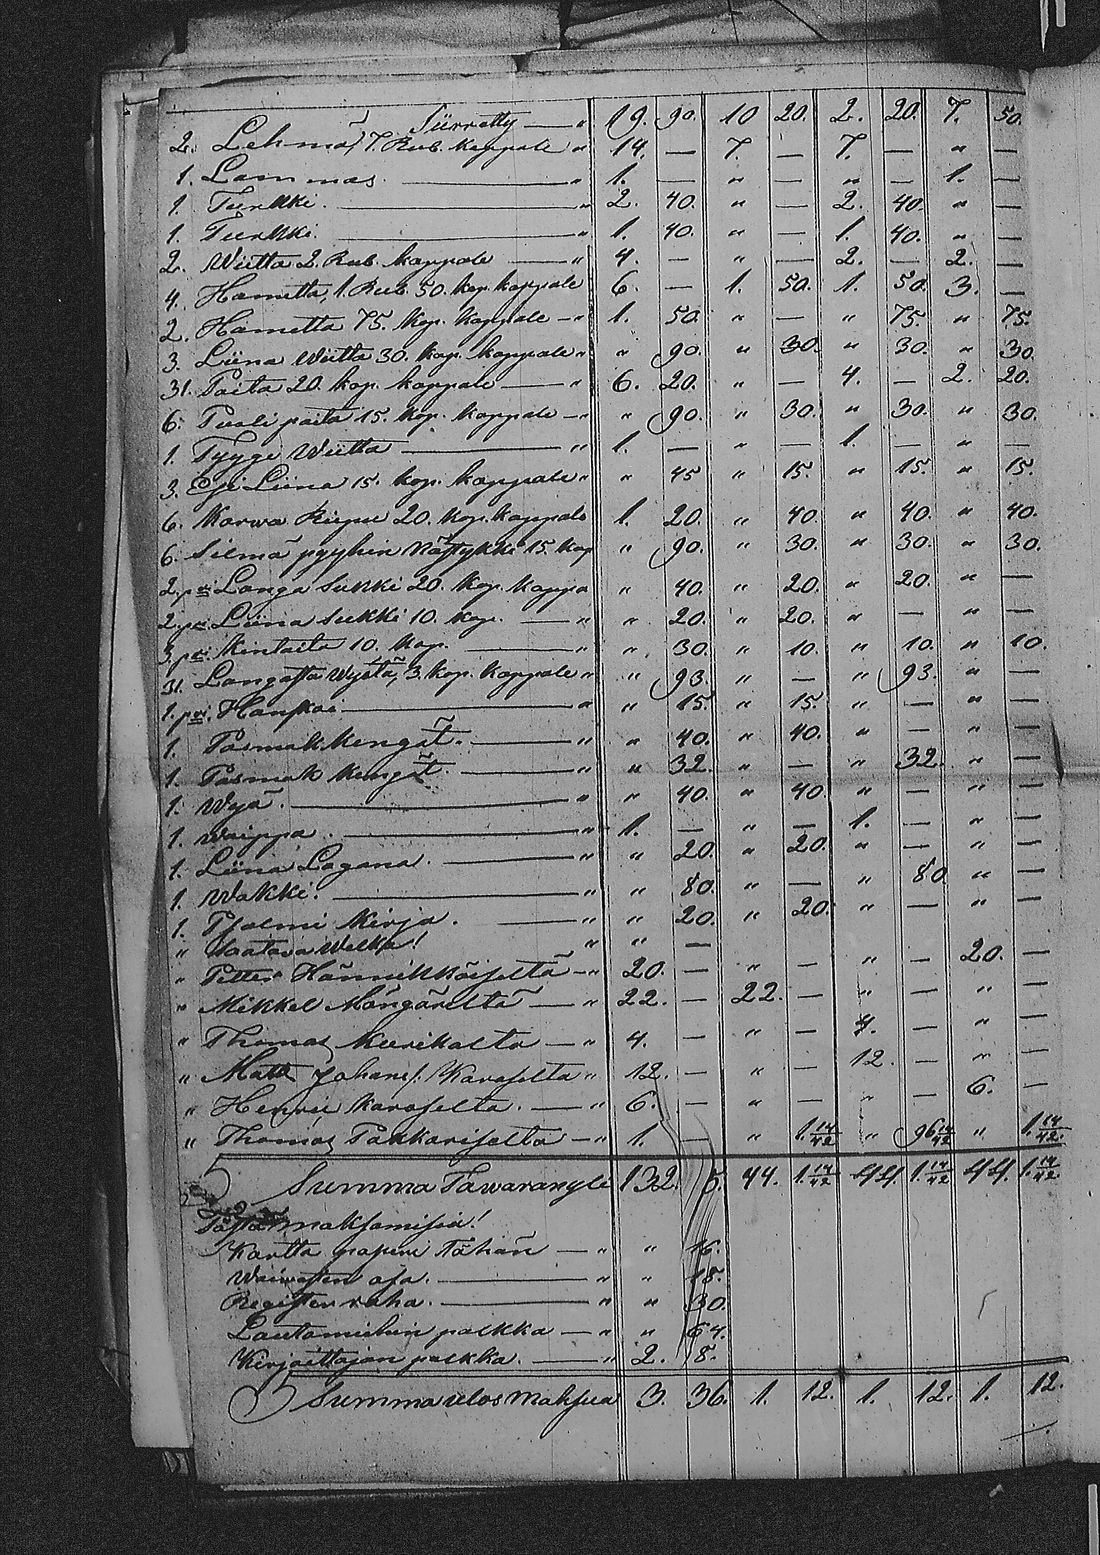 Siirretty — " 19. 90. 10 20. 2. 20. 7. 50.
2. Lehmä, 7. Rub. kappale " 14. — 7. — 7. — " —
1. Lammas — " 1. — " — " — 1. —
1. Turkki. — " 2. 40. " — 2. 40. " —
1. Turkki. — " 1. 40. " — 1. 40. " —
2. Wiitta 2. Rub. kappale — " 4. — " — 2. — 2. —
4. Hametta, 1. Rub. 50. kop. kappale 6. — 1. 50. 1. 50. 3. —
2. Hametta 75. kop. kappale — " 1. 50. " — " 75. " 75.
3. Liina Wiitta 30. kop. kappale " " 90. " 30. " 30. " 30.
31. Paita 20. kop. kappale — " 6. 20. " — 4. — 2. 20.
6. Puoli paita 15. kop. kappale — " " 90. " 30. " 30. " 30.
1. Tyygi Wiitta — " 1. — " — 1. — " —
3. Esi Liina 15. kop. kappale " " 45 " 15. " 15. " 15.
6. Korwa Riepu 20. kop. kappale 1. 20. " 40. " 40. " 40.
6. Silmä pyyhin Nästykki 15. kop " 90. " 30. " 30. " 30.
2. par Langa Sukki 20. kop. kappa " 40. " 20. " 20. " —
2. par Liina Sukki 10. kop. — " " 20. " 20. " — " —
3. par. Kintaita 10. kop. — " " 30. " 10. " 10. " 10.
31. Langasta Wyhtä, 3. kop. kappale " " 93. " — " 93. " —
1. par. Hanskat — " " 15. " 15. " — " —
1. Pasmak. kengät. — " " 40. " 40. " — " —
1. Pasmak kengät. — " " 32. " — " 32. " —
1. Wyö. — " " 40. " 40. " — " —
1. Waippa. — " 1. — " — 1. — " —
1. Liina Lagana. — " " 20. " 20. " — " —
1. Wakki. — " " 80. " — " 80. " —
1. Psalmi Kirja. — " " 20. " 20. " — " —
" Saatava Welka! " " —
" Petter Hännikkäiseltä — " 20. — " — " — 20. —
" Mikkel Mångäreltä — " 22. — 22. — " — " —
" Thomas Kurikalta — " 4. — " — 4. — " —
" Matts Johans. Karoselta " 12. — " — 12. — " —
" Henric Karoselta. — " 6. — " — " — 6. —
" Thomas Pakkariselta — " 1. — " 1. 14/42 " 96 14/42 " 1. 14/42.
Summa Tawarangli 132. 5. 44. 1. 14/42 44. 1. 14/42 44. 1. 14/42
Tästä maksamisia!
Kartta paperi Tähän — " " 16.
Waiwasten osa. — " " 18.
Registen raha. — " " 30.
Lautamiehin palkka — " " 64.
Kirjoittajan palkka. — " 2. 8.
Summa ulos maksua 3. 36. 1. 12. 1. 12. 1. 12.